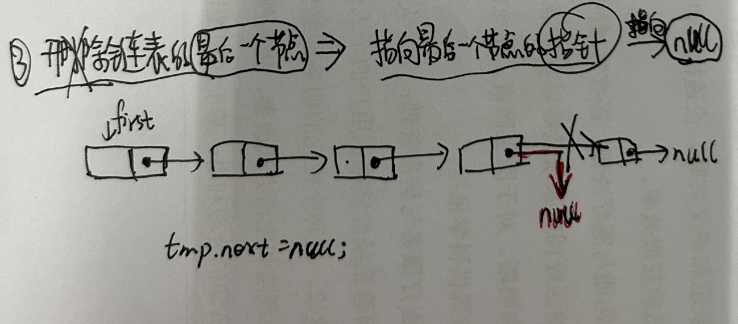 ③ 删除链表的最后一个节点 ⇒ 指向最后一个节点的指针 指向 null
first
null
null
tmp.next = null;